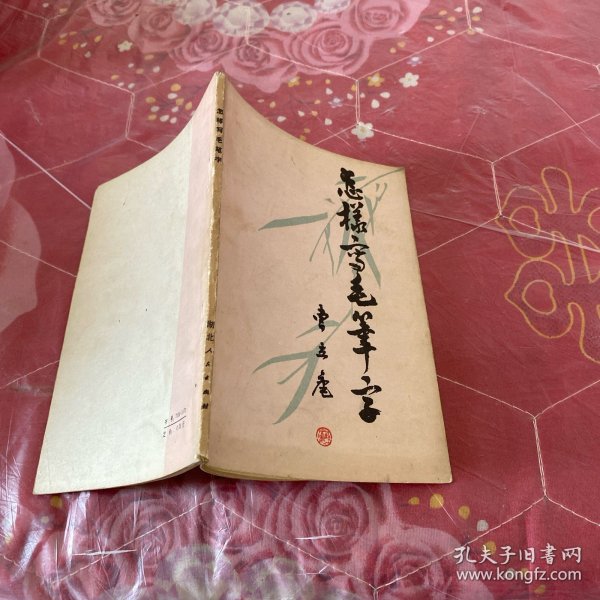 怎樣寫毛筆字
曹立庵
怎样写毛笔字
湖北人民出版社
孔夫子旧書网
www.kongfz.com